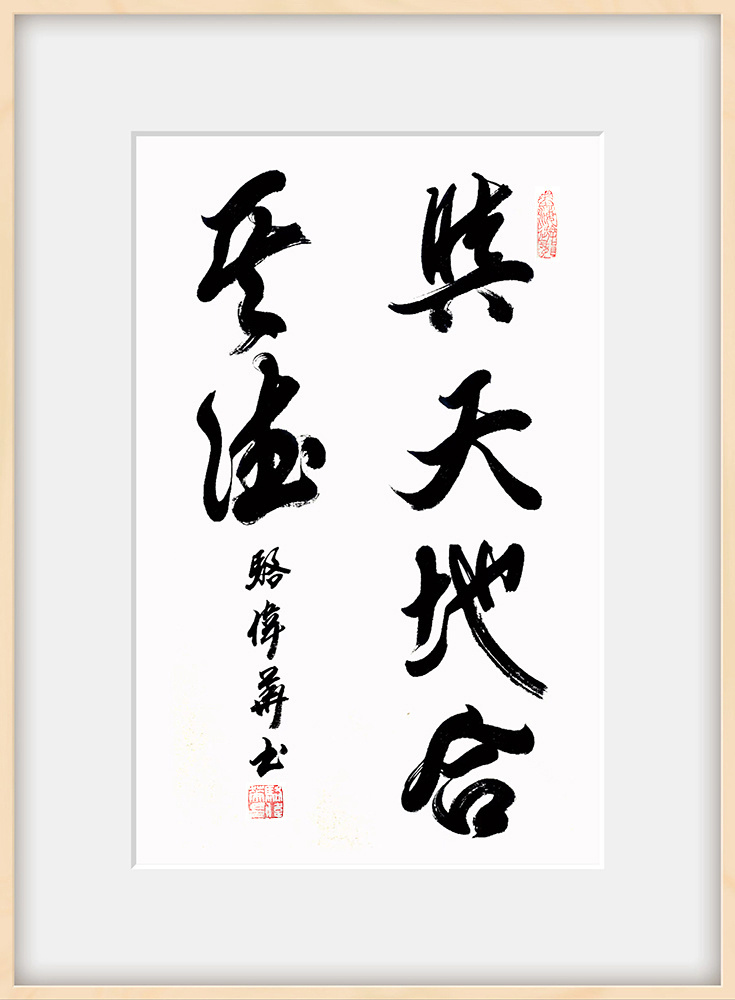 與天地合
其德
駱偉華書